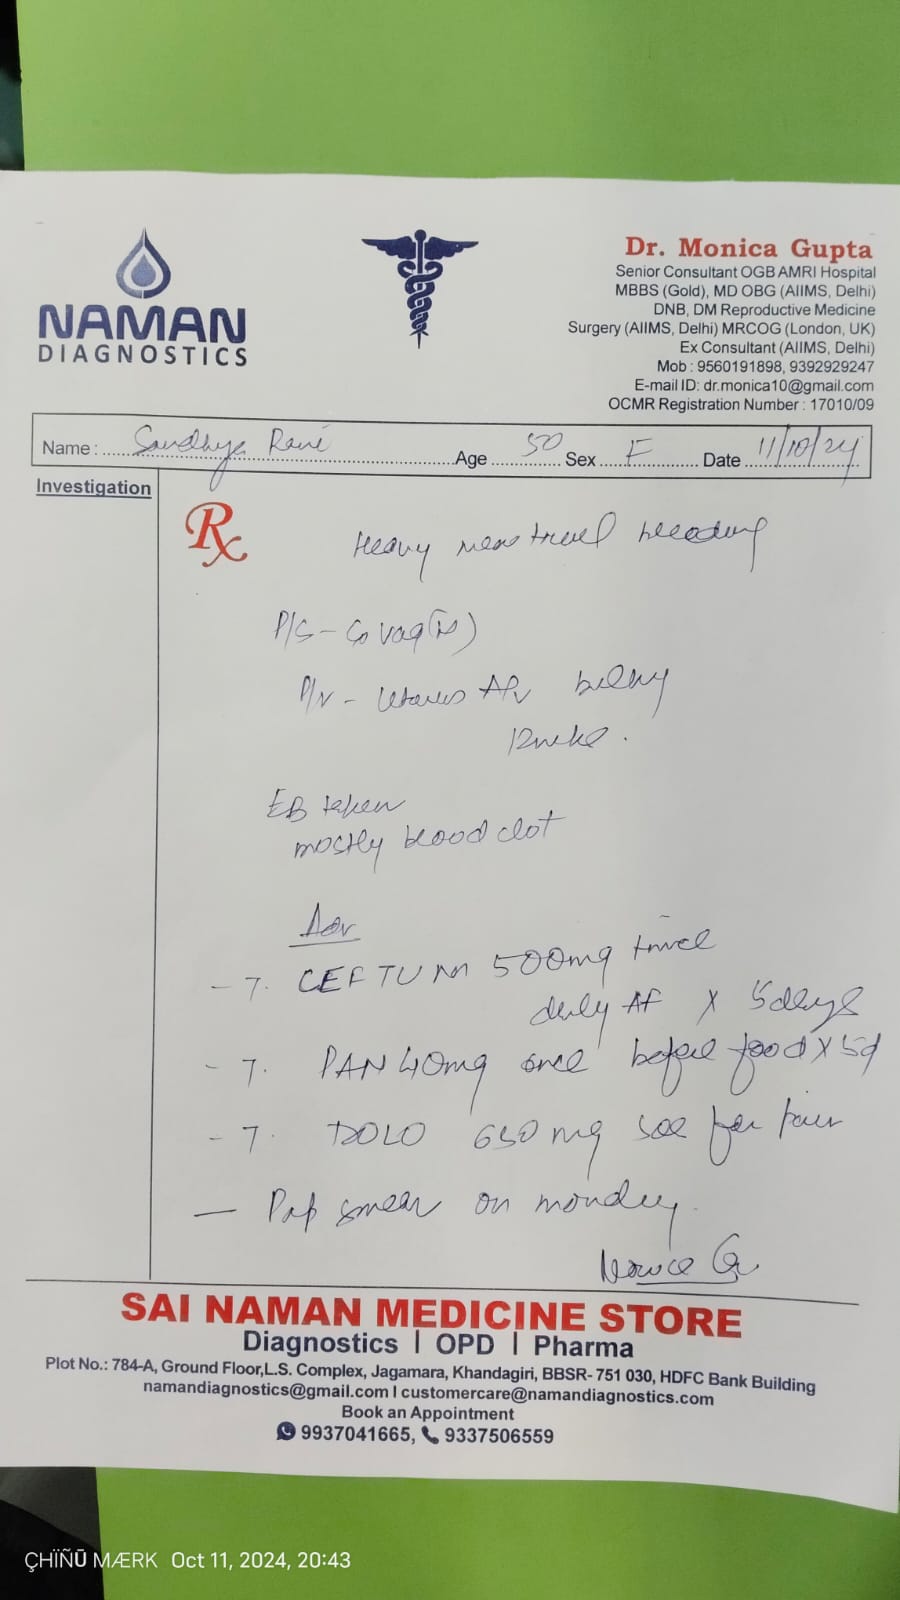 NAMAN
DIAGNOSTICS
Dr. Monica Gupta
Senior Consultant OGB AMRI Hospital
MBBS (Gold), MD OBG (AIIMS, Delhi)
DNB, DM Reproductive Medicine
Surgery (AIIMS, Delhi) MRCOG (London, UK)
Ex Consultant (AIIMS, Delhi)
Mob : 9560191898, 9392929247
E-mail ID: dr.monica10@gmail.com
OCMR Registration Number : 17010/09
Name : Sandhya Rani Age 50 Sex F Date 11/10/24
Investigation
Rx
Heavy menstrual bleeding
P/S - Cx vag (N)
P/V - Uterus AV bulky
12 weeks.
EB taken
mostly blood clot
Adv
- T. CEFTUM 500mg twice
daily AF x 5 days
- T. PAN 40mg once before food x 5d
- T. DOLO 650 mg SOS for pain
- Pap smear on monday.
SAI NAMAN MEDICINE STORE
Diagnostics | OPD | Pharma
Plot No.: 784-A, Ground Floor,L.S. Complex, Jagamara, Khandagiri, BBSR- 751 030, HDFC Bank Building
namandiagnostics@gmail.com I customercare@namandiagnostics.com
Book an Appointment
9937041665, 9337506559
ÇHÏÑŪ MÆRK Oct 11, 2024, 20:43